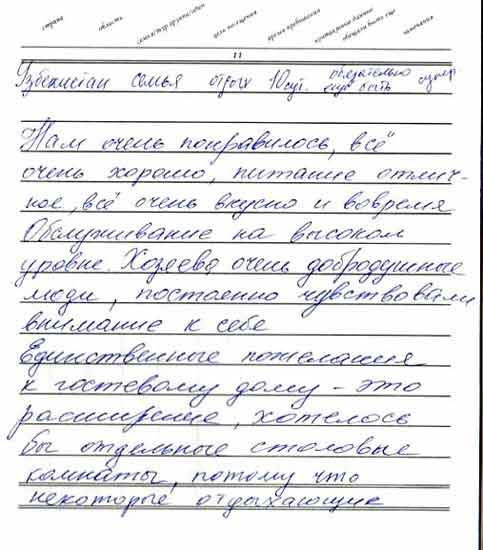 страна область семья/тур.группа/один цель посещения время пребывания контактные данные замечания
обещали быть еще
11
Узбекистан семья отдых 10 сут. обязательно
еще быть
Нам очень понравилось, всё
очень хорошо, питание отлич-
ное, всё очень вкусно и вовремя
Обслуживание на высоком
уровне. Хозяева очень добродушные
люди, постоенно чувствовали
внимание к себе
Единственные пожелания
к гостевому дому - это
расширение, хотелось
бы отдельные столовые
комнаты, потому что
некоторые отдыхающие